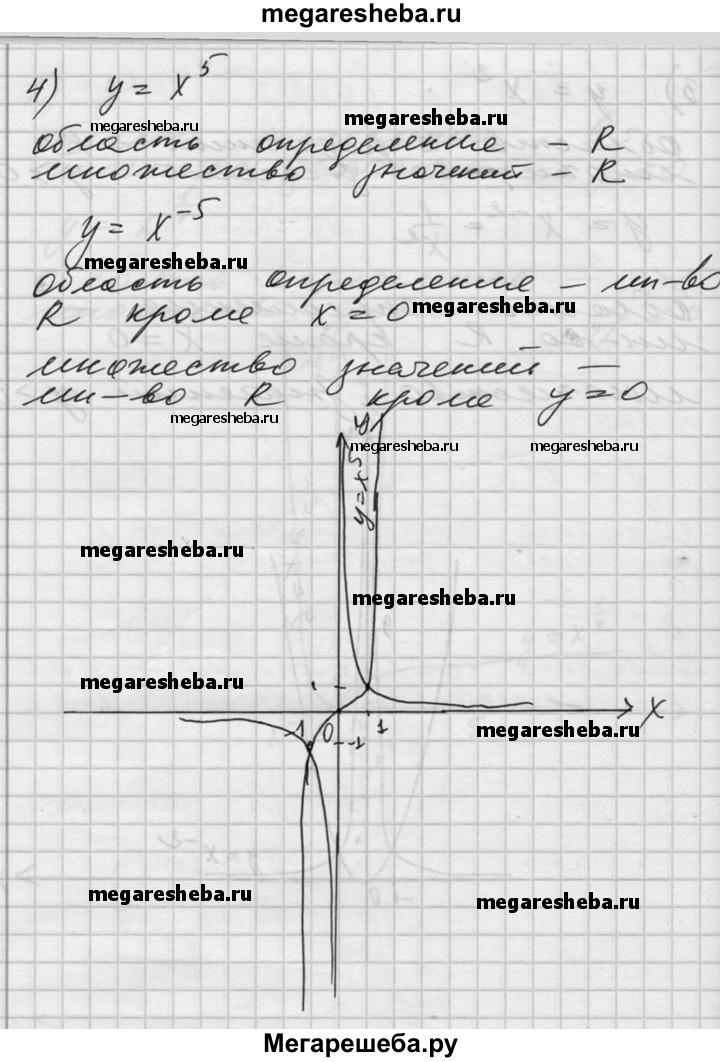 megaresheba.ru
4) y = x⁵
megaresheba.ru
megaresheba.ru
область определение – R
множество значений – R
y = x⁻⁵
megaresheba.ru
область определение – мн-во
R кроме x = 0
megaresheba.ru
множество значений –
мн-во R кроме y = 0
megaresheba.ru
megaresheba.ru
megaresheba.ru
y
y = x⁵
megaresheba.ru
megaresheba.ru
megaresheba.ru
-1 0 1 x
-1
megaresheba.ru
megaresheba.ru
megaresheba.ru
Мегарешеба.ру